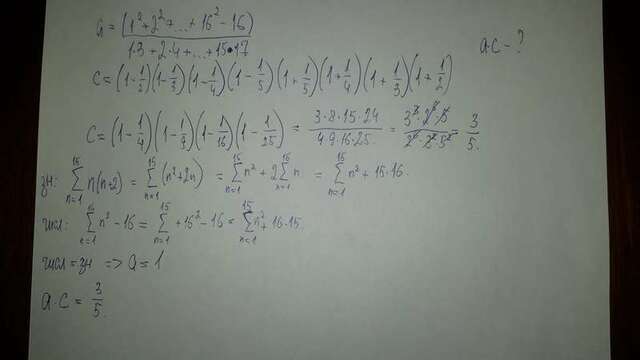 a = (1² + 2² + ... + 16² - 16) / (1·3 + 2·4 + ... + 15·17)
a·c - ?
c = (1 - 1/2)(1 - 1/3)(1 - 1/4)(1 - 1/5)(1 + 1/5)(1 + 1/4)(1 + 1/3)(1 + 1/2)
c = (1 - 1/4)(1 - 1/9)(1 - 1/16)(1 - 1/25) = (3·8·15·24)/(4·9·16·25) = 3/5.
зн: ∑ₙ₌₁¹⁵ n(n+2) = ∑ₙ₌₁¹⁵ (n²+2n) = ∑ₙ₌₁¹⁵ n² + 2∑ₙ₌₁¹⁵ n = ∑ₙ₌₁¹⁵ n² + 15·16.
числ: ∑ₙ₌₁¹⁶ n² - 16 = ∑ₙ₌₁¹⁵ + 16² - 16 = ∑ₙ₌₁¹⁵ n² + 16·15.
числ = зн => a = 1
a·c = 3/5.